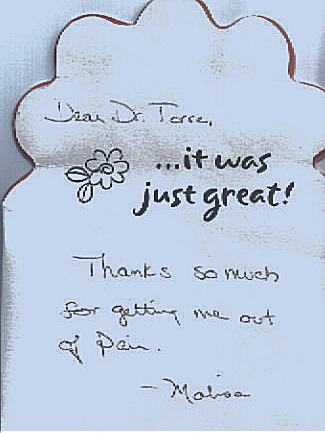 Dear Dr. Torre,
...it was
just great!
Thanks so much
for getting me out
of Pain.
- Malisa